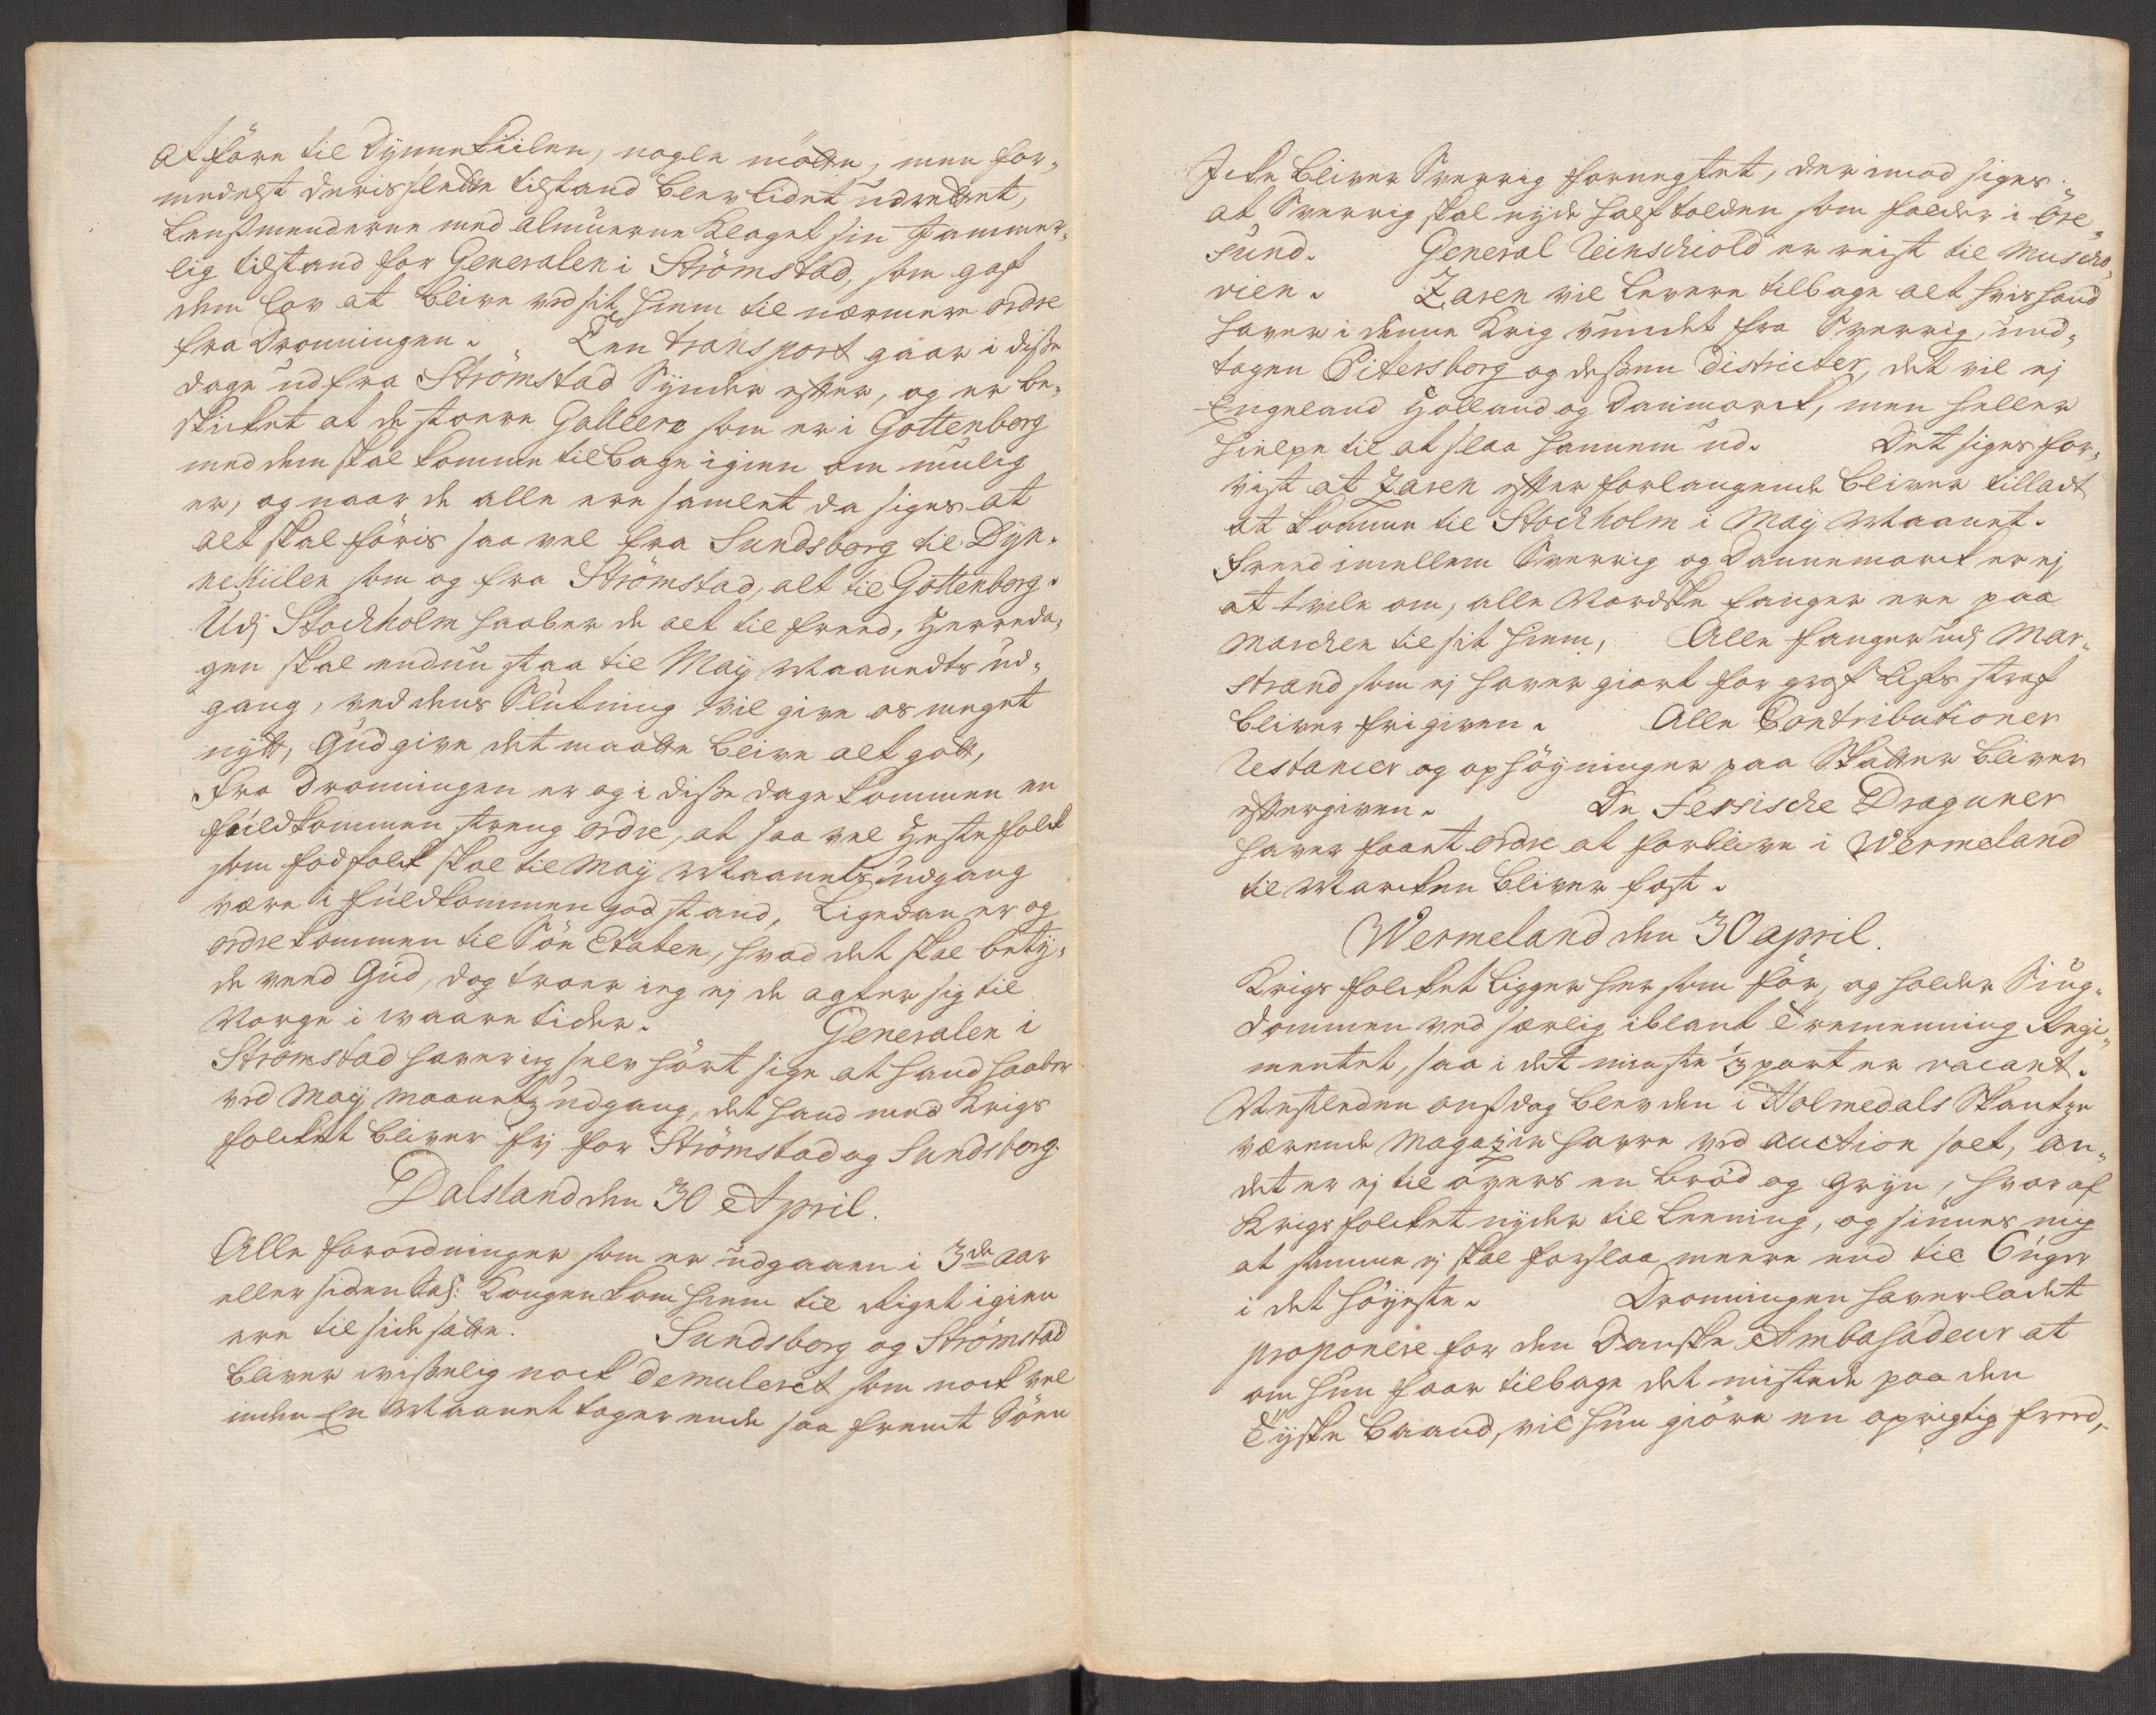 At före til Dynnekiilen, nogle mötte, men for-
medelst deris slette tilstand blev lidet udrettet,
Lensmenderne med almuerne klaget sin Jammer-
lig tilstand for Generalen i Strömstad, som gaf
dem lov at blive ved sit hiem til nærmere ordre
fra Dronningen. Een transport gaar i disse
dage ud fra Strömstad Synder efter, og er be-
skicket at de stoere Galleere som er i Gottenborg
med dem skal komme tilbage igien om mulig
er, og naar de alle ere samlet da siges at
alt skal föris saa vel fra Sundsborg til Dyn-
nekiilen som og fra Strömstad, alt til Gottenborg.
Udj Stockholm haaber de alt til freed, Herreda-
gen skal endnu staa til Maij Maanedts ud-
gang, ved dens Slutning vil give os meget
nytt, Gud give det maatte blive alt gott,
fra Dronningen er og i disse dage kommen en
fuldkommen streng ordre, at saa vel Hestefolck
som fodfolck skal til Maij Maanets udgang
være i fuldkommen god stand, Ligedan er og
ordre kommen til Söe Etaten, hvad det skal bety-
de veed Gud, dog troer ieg ej de agter sig til
Norge i waare tider. Generalen i
Strömstad haver ieg selv hört sige at hand haaber
ved Maij maanets udgang, det hand med Krigs
folcket bliver frj for Strömstad og Sundsborg.
Dalsland den 30 April.
Alle forordninger som er udgaaen i 3de aar
eller siden Sal: Kongen kom hiem til Riget igien
ere til side satte. Sundsborg og Strömstad
bliver visselig nock demuleret som nock vel
inden En Maanet tager ende saa fremt Söen
Icke bliver Sverrig fornegtet, der imod siges
at Sverrig skal nyde half tolden som falder i Öre-
sund. General Reinschiold er reist til Musco-
vien. Zaren vil levere tilbage alt hvis hand
haver i denne Krig vundet fra Sverrig, und-
tagen Pitersborg og dessen districter, det vil ej
Engeland Holland og Danmarck, men heller
hielpe til at slaa hannem ud. Det siges for-
vist at Zaren efter forlangende bliver tilladt
at komme til Stockholm i Maij Maanet.
freed imellem Sverrig og Dannemarck er ej
at tvile om, alle Nordske fanger ere paa
marchen til sit hiem, Alle fanger udj Mar-
strand som ej haver giort for grof Lifs straf
bliver frigiven. Alle Contributioner
Restancer og ophöyninger paa Skatter bliver
eftergiven. De Hessische Draguner
haver faaet ordre at forblive i Wermeland
til Marcken bliver fast.
Wermeland den 30 april.
Krigs folcket ligger her som för, og holder Siug-
dommen ved særlig iblant Tremenning Regi-
mentet, saa i det minste ⅓ part er vacant.
Nestleden onsdag blev den i Holmedals Skantze
værende Magazin havre ved auction solt, an-
det er ej til övers en bröd og gryn, hvor af
Krigs folcket nyder til Leening, og siunes mig
at samme ej skal forslaa meere end til 6 uger
i det höyeste. Dronningen haver ladet
proponere for den Danske Ambasadeur at
om hun faar tilbage det mistede paa den
Tyske baand, vil hun giöre en oprigtig freed,